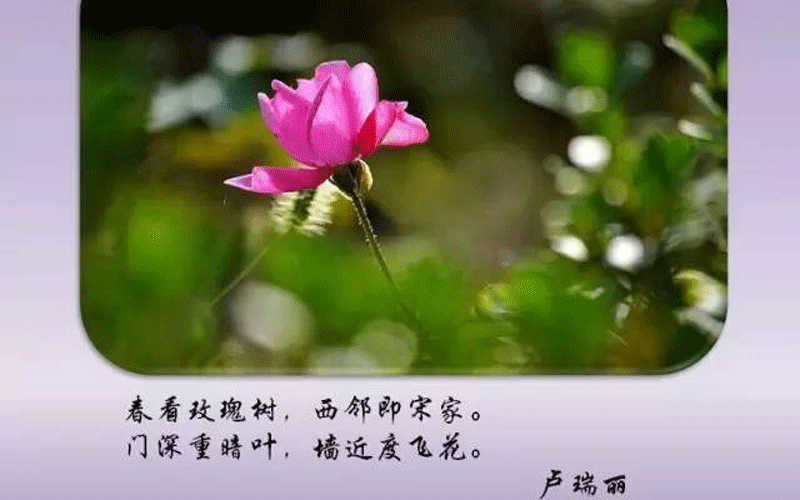 春看玫瑰树，西邻即宋家。
门深重暗叶，墙近度飞花。
卢瑞丽